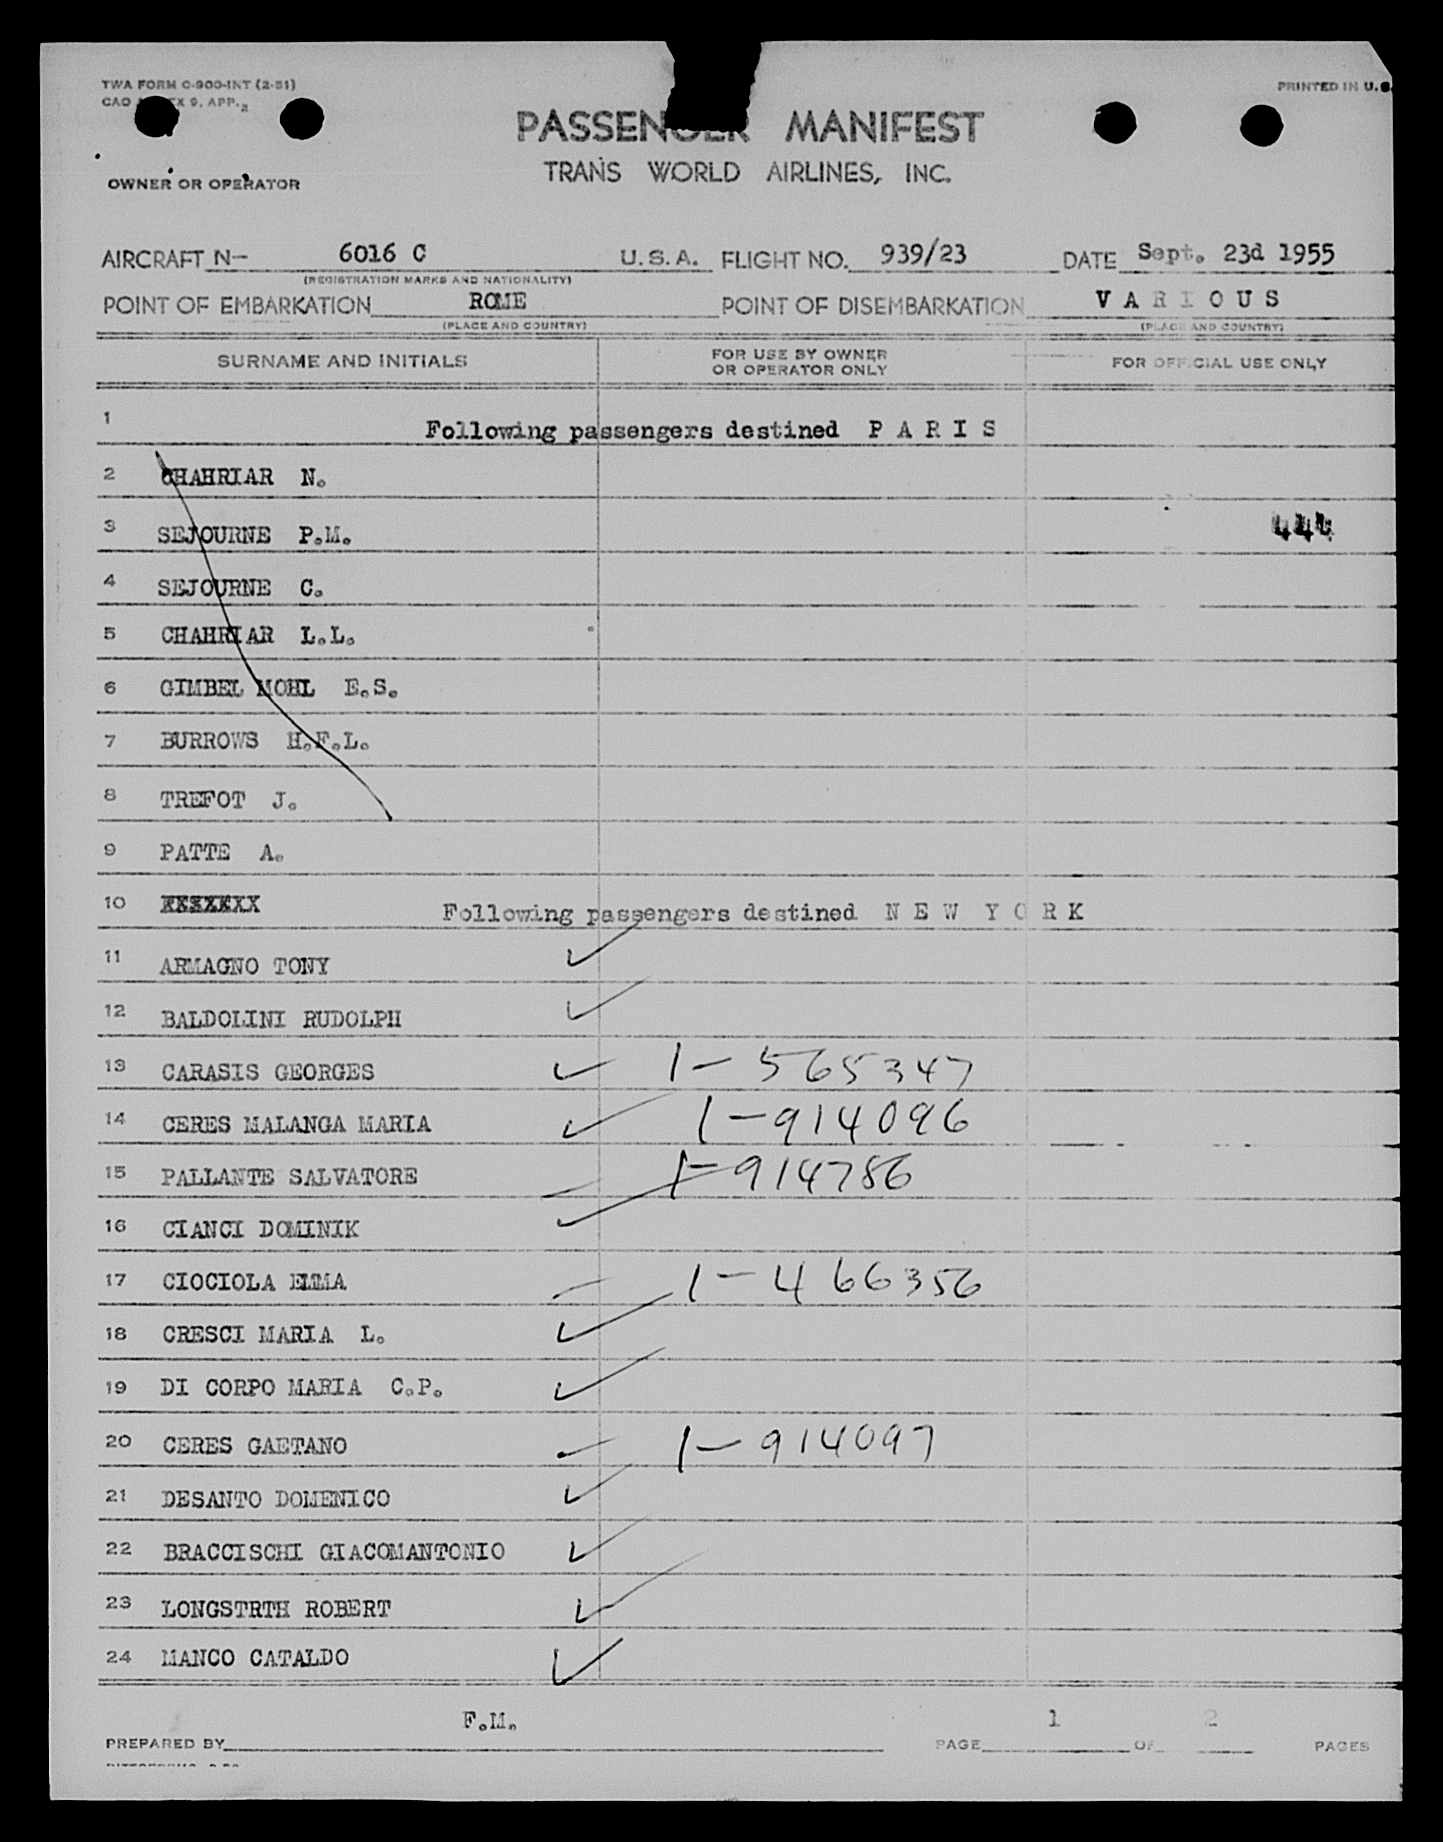 TWA FORM C-900-INT (2-51)
PRINTED IN U.S.
CAO EX 9, APP. 2
PASSENGER MANIFEST
TRANS WORLD AIRLINES, INC.
OWNER OR OPERATOR
AIRCRAFT N— 6016 C U.S.A. FLIGHT NO. 939/23 DATE Sept. 23d 1955
(REGISTRATION MARKS AND NATIONALITY)
POINT OF EMBARKATION ROME POINT OF DISEMBARKATION V A R I O U S
(PLACE AND COUNTRY) (PLACE AND COUNTRY)
SURNAME AND INITIALS FOR USE BY OWNER OR OPERATOR ONLY FOR OFFICIAL USE ONLY
1 Following passengers destined P A R I S
2 CHAHRIAR N.
3 SEJOURNE P.M. 444
4 SEJOURNE C.
5 CHAHRIAR L.L.
6 GIMBEL MOHL E.S.
7 BURROWS H.F.L.
8 TREFOT J.
9 PATTE A.
10 Following passengers destined N E W Y O R K
11 ARMAGNO TONY
12 BALDOLINI RUDOLPH
13 CARASIS GEORGES 1-565347
14 CERES MALANGA MARIA 1-914096
15 PALLANTE SALVATORE 1-914786
16 CIANCI DOMINIK
17 CIOCIOLA EMMA 1-466356
18 CRESCI MARIA L.
19 DI CORPO MARIA C.P.
20 CERES GAETANO 1-914097
21 DESANTO DOMENICO
22 BRACCISCHI GIACOMANTONIO
23 LONGSTRTH ROBERT
24 MANCO CATALDO
PREPARED BY F.M. PAGE 1 OF 2 PAGES